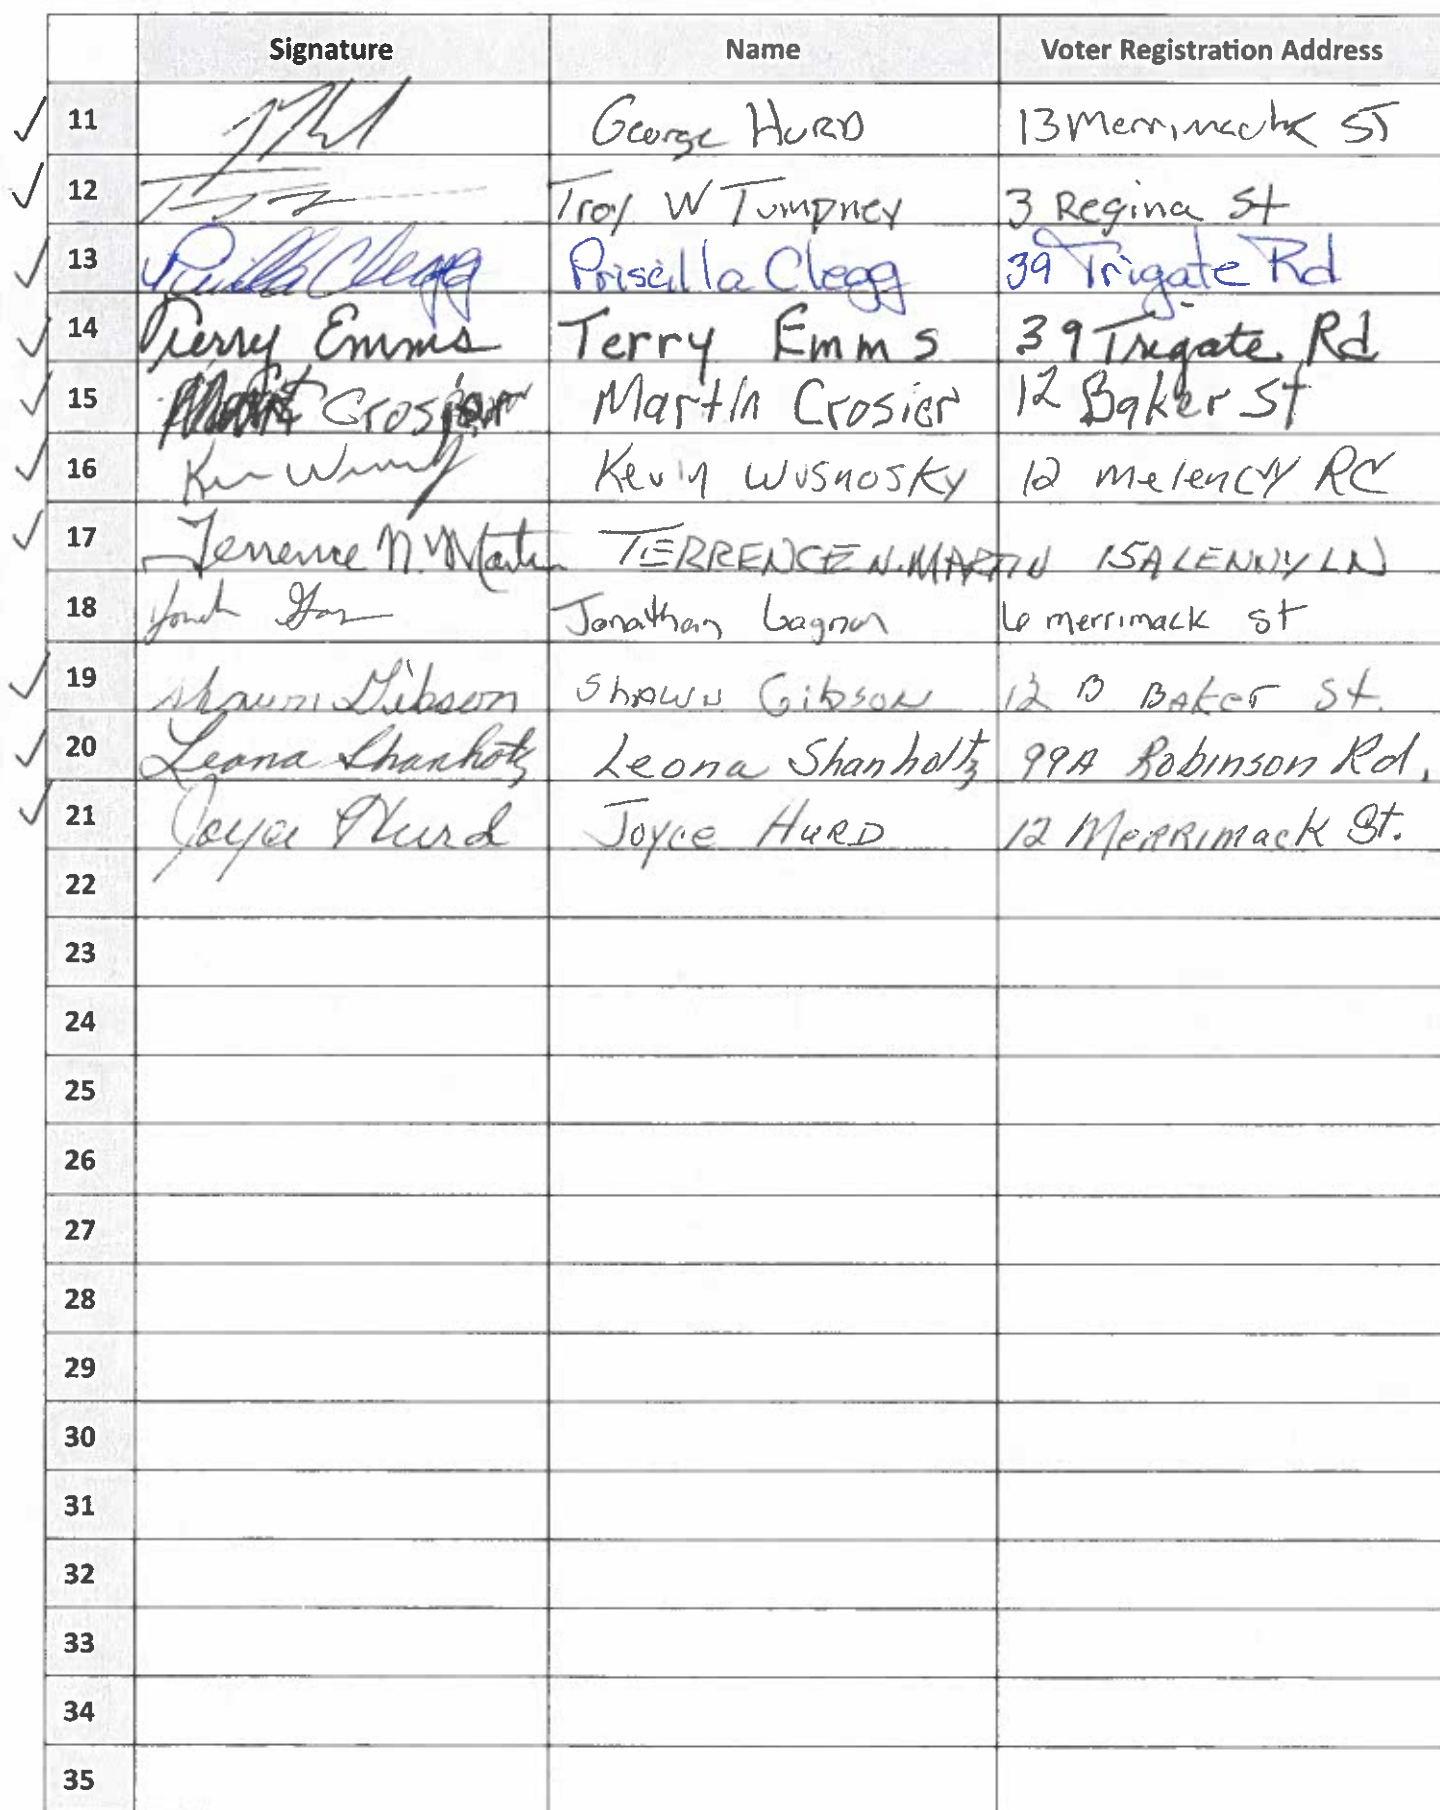 Signature Name Voter Registration Address
✓ 11 George HURD 13 Merrimack ST
✓ 12 Troy W Tumpney 3 Regina St
✓ 13 Priscilla Clegg Priscilla Clegg 39 Trigate Rd
✓ 14 Terry Emms Terry Emms 39 Trigate Rd
✓ 15 Crosier Martin Crosier 12 Baker St
✓ 16 Kevin Wusnosky 12 Melency RD
✓ 17 Terrence N. Martin TERRENCE N. MARTIN 15A LENNY LN
18 Jonathan Gagnon 6 merrimack st
✓ 19 Shawn Gibson SHAWN GibSON 12 B BAKer St.
✓ 20 Leona Shanholtz Leona Shanholtz 99A Robinson Rd.
✓ 21 Joyce Hurd Joyce HURD 12 MERRIMACK St.
22
23
24
25
26
27
28
29
30
31
32
33
34
35